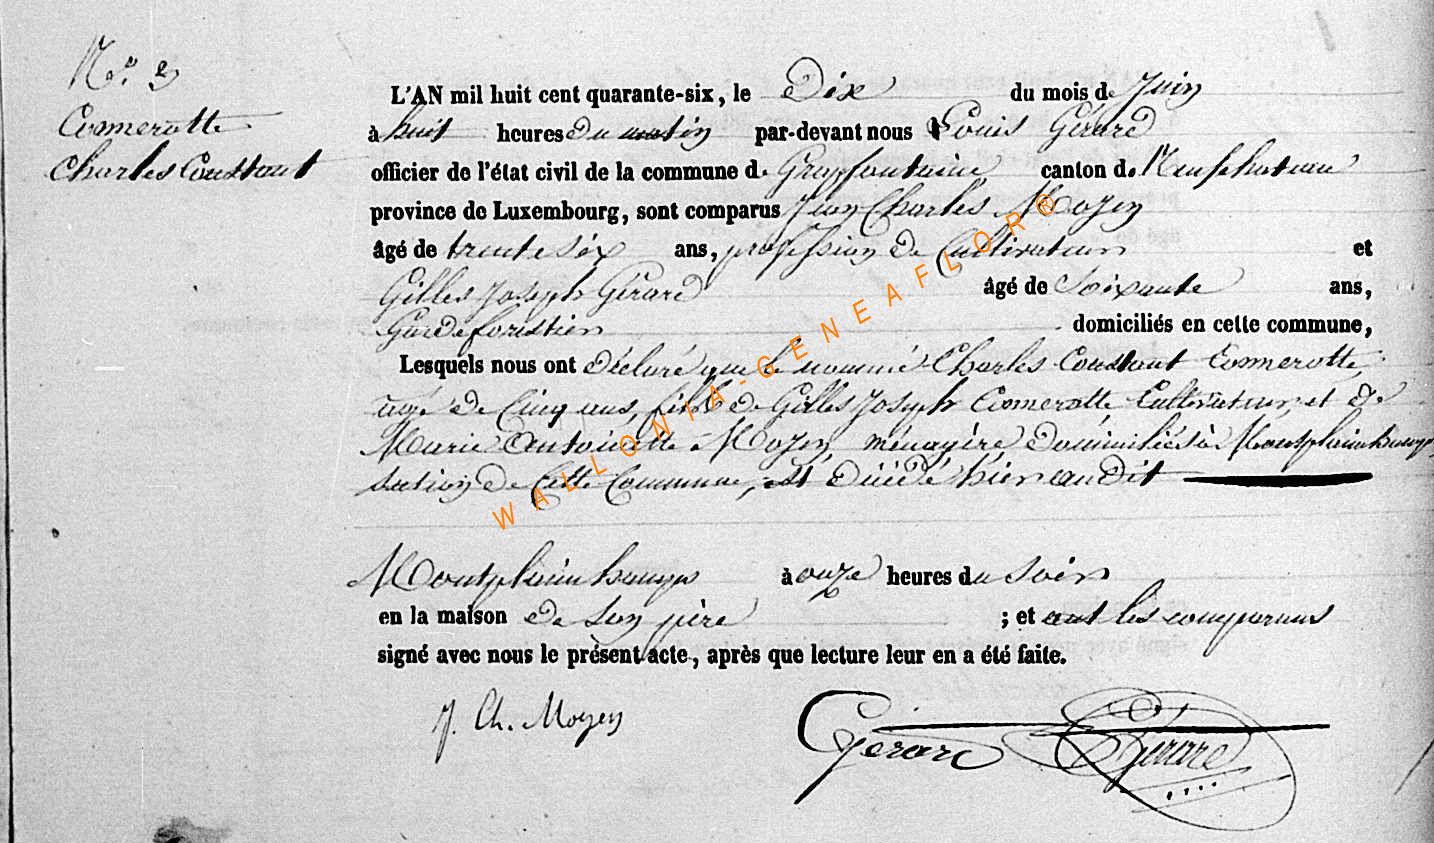 N.° 2
Comerotte
Charles Constant
L'AN mil huit cent quarante-six, le Dix du mois de Juin
à huit heures du matin par-devant nous Louis Gérard
officier de l'état civil de la commune de Grapfontaine canton de Neufchateau
province de Luxembourg, sont comparus Jean Charles Mozen
âgé de trente six ans, profession de Cultivateur et
Gilles Joseph Gérard âgé de Soixante ans,
Garde forestier domiciliés en cette commune,
Lesquels nous ont déclaré que le nommé Charles Constant Comerotte,
âgé de Cinq ans, fils de Gilles Joseph Comerotte Cultivateur, et de
Marie Antoinette Mozen ménagère domiciliés à Montplainchamps
section de Cette Commune, est décédé hier audit
Montplainchamps à onze heures du Soir
en la maison de Son père ; et ont les comparans
signé avec nous le présent acte, après que lecture leur en a été faite.
J. Ch. Mozen Gerard Gerard
WALLONIA-GENEAFLOR®